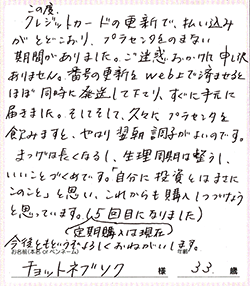 この度、
クレジットカードの更新で、払い込み
がとどこおり、プラセンタをのまない
期間がありました。ご迷惑おかけし申し訳
ありません。番号の更新をweb上で済ませると
ほぼ同時に発送して下さり、すぐに手元に
届きました。そしてそして、久々にプラセンタを
飲みますと、やはり翌朝調子がよいのです。
まつげは長くなるし、生理周期は整うし、
いいことづくめです。「自分に投資とはまさに
このこと」と思い、これからも購入しつづけよう
と思っています。(5回目になりました)
(定期購入は現在)
今後ともどうぞよろしくおねがいします。
お名前(本名orペンネーム) 年齢
チョットネブソク 様 33 歳